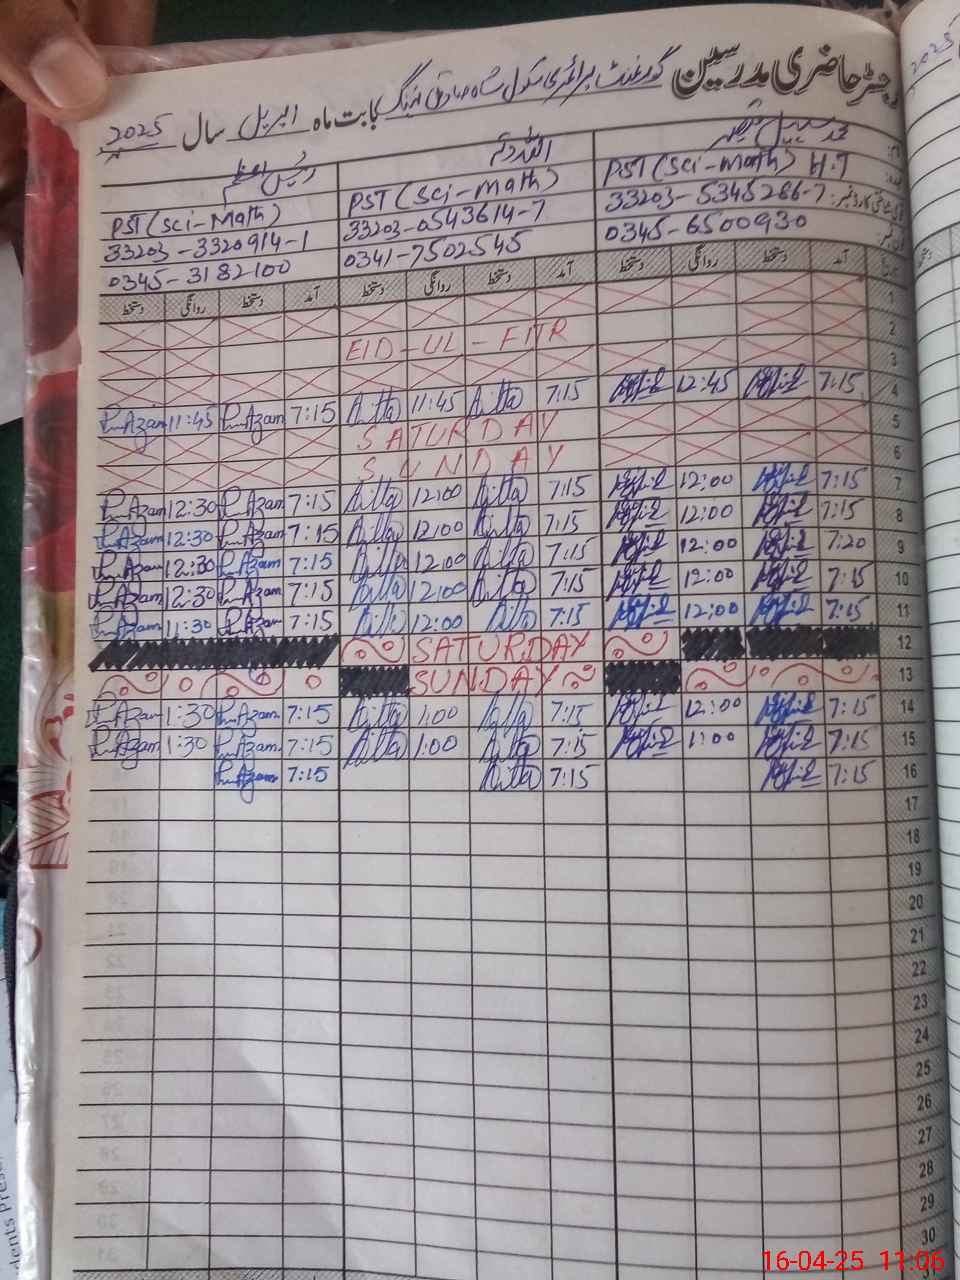 رجسٹر حاضری مدرسین گورنمنٹ پرائمری سکول شاہ صادق نہنگ بابت ماہ اپریل سال 2025
محمد سہیل
PST (Sci-Math) H.T
33203-5345286-7
0345-6500930
اللہ دتہ
PST (Sci-Math)
33203-0543614-7
0341-7502545
رئیس اعظم
PST (Sci-Math)
33203-3320914-1
0345-3182100
آمد دستخط روانگی دستخط آمد دستخط روانگی دستخط آمد دستخط روانگی دستخط
1
2 EID-UL-FITR
3
4 7:15 12:45 7:15 11:45 7:15 R.Azam 11:45 R.Azam
5 SATURDAY
6 SUNDAY
7 7:15 12:00 7:15 12:00 7:15 R.Azam 12:30 R.Azam
8 7:15 12:00 7:15 12:00 7:15 R.Azam 12:30 R.Azam
9 7:20 12:00 7:15 12:00 7:15 R.Azam 12:30 R.Azam
10 7:15 12:00 7:15 12:00 7:15 R.Azam 12:30 R.Azam
11 7:15 12:00 7:15 12:00 7:15 R.Azam 11:30 R.Azam
12 SATURDAY
13 SUNDAY
14 7:15 12:00 7:15 1:00 7:15 R.Azam 1:30 R.Azam
15 7:15 1:00 7:15 1:00 7:15 R.Azam 1:30 R.Azam
16 7:15 7:15 7:15 R.Azam
17
18
19
20
21
22
23
24
25
26
27
28
29
30
2025
16-04-25 11:06